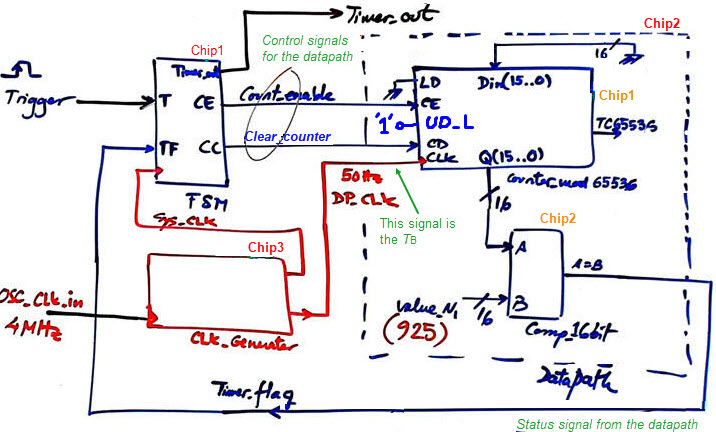 Timer_out
Chip2
Chip1
Control signals
for the datapath
16
Timer_out
LD
Din(15..0)
Trigger
T
CE
Count_enable
CE
Chip1
'1'
UD_L
TC65536
TF
CC
Clear_counter
CD
CLK
Q(15..0)
FSM
50Hz
DP_CLK
Counter_mod 65536
Sys_CLK
This signal is
the TB
16
Chip2
Chip3
A
A=B
OSC_CLK_in
4MHz
Value_N1
(925)
16
B
CLK_Generator
Comp_16bit
Datapath
Timer_flag
Status signal from the datapath